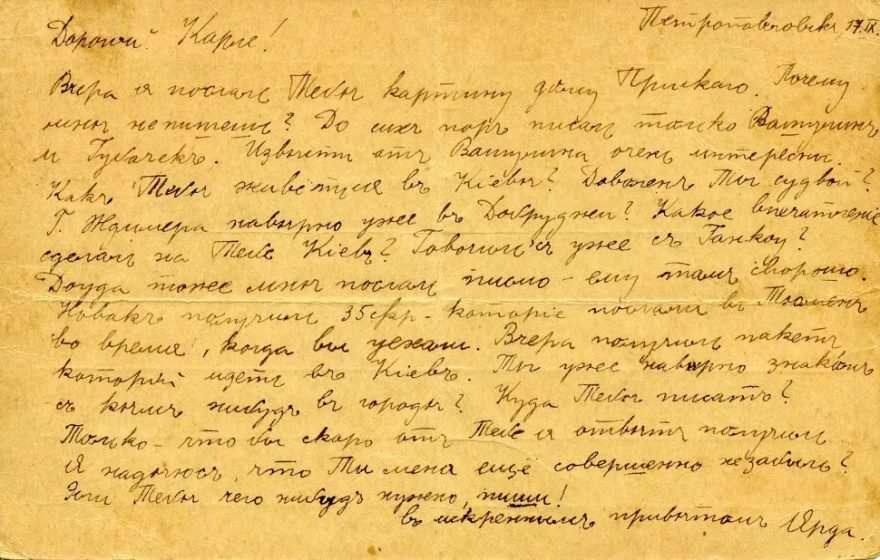 Петропавловскъ 17.IX.
Дорогой Карле!
Вчера я послалъ Тебѣ картину дому Почему
мнѣ непишешъ? До сихъ поръ писалъ только Ватулинъ
и Губачекъ. Извѣсти отъ Ватулина очень интересны.
Какъ Тебѣ живется въ Кіевѣ? Доволенъ Ты судбой?
Г. Ждимера навѣрно уже въ Добруджи? Какое впечатленіе
сделалъ на Тебе Кіевъ? Говорилъ уже съ Ганкоу?
Доуда тоже мнѣ послалъ писмо - ему тамъ хорошо.
Новакъ получилъ 35 фр - которіе послали въ Тюмень
во время, когда вы уехали. Вчера получилъ пакетъ
которій идетъ въ Кіевъ. Ты уже наверно знакомъ
съ кѣмъ нибудъ въ городѣ? Куда Тебѣ писатъ?
Только - что бы скоро отъ Тебе я отвѣтъ получилъ
Я надѣюсъ, что Ты мена ещё совершенно незабылъ?
Эсли Тебѣ чего нибудъ нужно, пиши!
въ искреннимъ привѣтомъ Ярда.